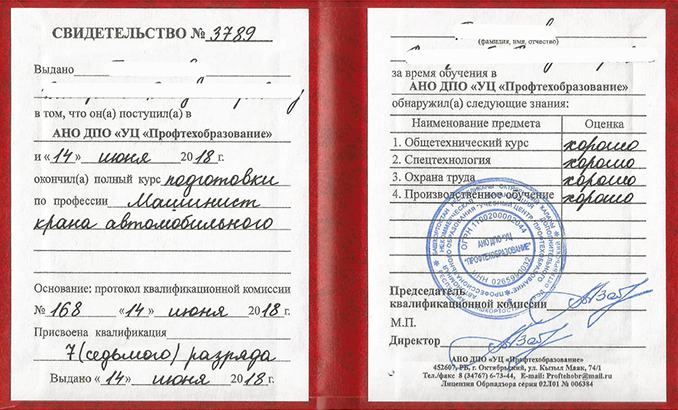 СВИДЕТЕЛЬСТВО № 3789
Выдано
в том, что он(а) поступил(а) в
АНО ДПО «УЦ «Профтехобразование»
и «14» июня 2018 г.
окончил(а) полный курс подготовки
по профессии Машинист
крана автомобильного
Основание: протокол квалификационной комиссии
№ 168 «14» июня 2018 г.
Присвоена квалификация
7 (седьмого) разряда
Выдано «14» июня 2018 г.
(фамилия, имя, отчество)
за время обучения в
АНО ДПО «УЦ «Профтехобразование»
обнаружил(а) следующие знания:
Наименование предмета Оценка
1. Общетехнический курс хорошо
2. Спецтехнология хорошо
3. Охрана труда хорошо
4. Производственное обучение хорошо
АНО ДПО «УЦ
"ПРОФТЕХОБРАЗОВАНИЕ"
Председатель
квалификационной комиссии
М.П.
Директор
АНО ДПО «УЦ «Профтехобразование»
452607, РБ, г. Октябрьский, ул. Кызыл Маяк, 74/1
Тел./факс 8 (34767) 6-73-44, E-mail: Proftehobr@mail.ru
Лицензия Обрнадзора серия 02Л01 № 006384